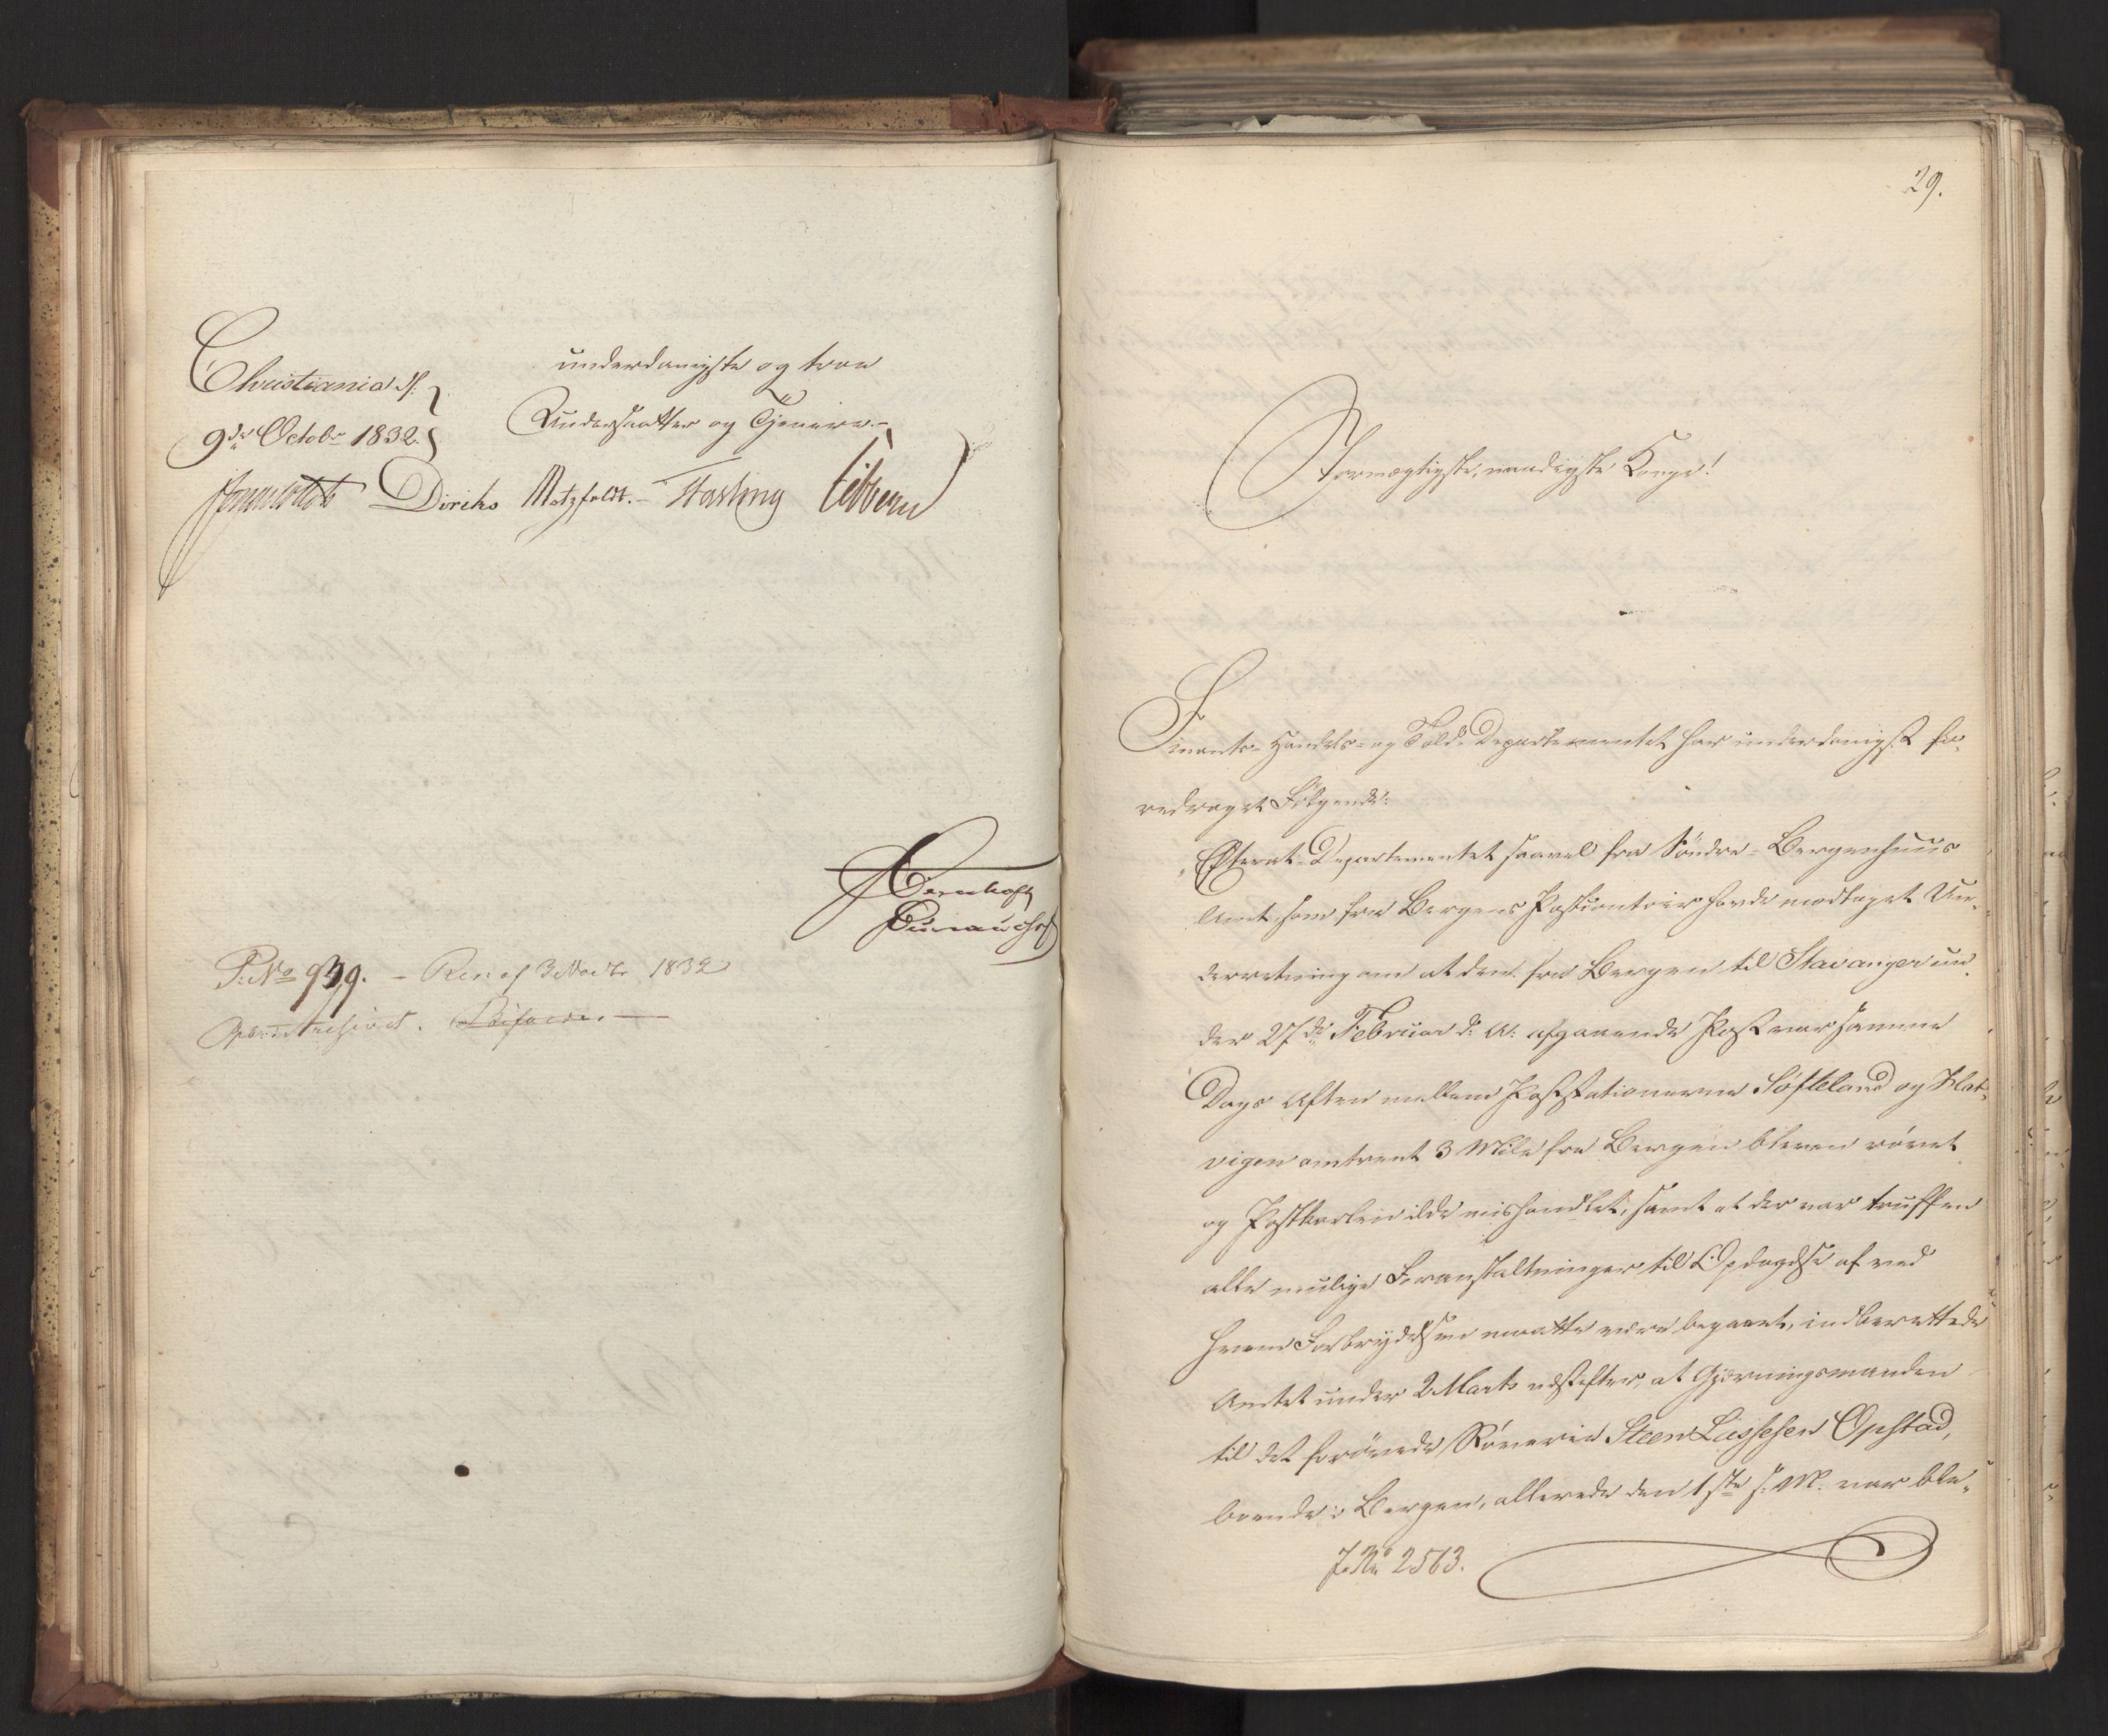 Christiania d.
9de Octobr 1832.
underdanigste og troe
Undersaatter og Tjenere.-
Diriks Motzfeldt.- Fasting Sibbern
P. No 939. - Res: af 3 Novbr 1832
29.
Stormægtigste, naadigste Konge!
Finants- Handels- og Told-Departementet har underdanigst fo-
redraget Følgende:
"Efterat Departementet saavel fra Søndre-Bergenhuus
Amt som fra Bergens Postcontoir havde modtaget Un-
derretning om at den fra Bergen til Stavanger un-
der 27de Februar d. A. afgaaende Post var samme
Dags Aften mellem Poststationerne Søfteland og Hat-
vigen omtrent 3 Mile fra Bergen bleven røvet
og Postkarlen ilde mishandlet, samt at der var truffen
alle mulige Foranstaltninger til Opdagelse af ved
hvem Forbrydelsen maatte være begaaet, indberettede
Amtet under 2 Marts næstefter, at Gjerningsmanden
til det forøvede Røverie Steen Lassesen Opstad,
boende i Bergen, allerede den 1ste s. M. var ble-
J. No 2563.